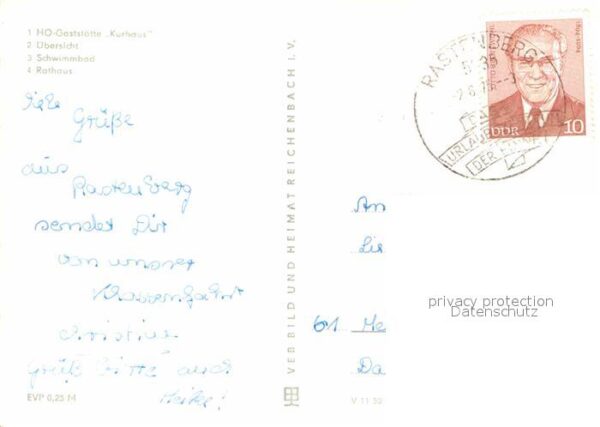 1 HO-Gaststätte „Kurhaus"
2 Übersicht
3 Schwimmbad
4 Rathaus
Viele
Grüße
aus
Rastenberg
sendet Dir
von unserer
Klassenfahrt
Christine
Grüß bitte auch
Heike!
EVP 0,25 M
VEB BILD UND HEIMAT REICHENBACH I. V.
RASTENBERG
DDR
10
URLAUB
DER
An
61
Da
V 11 50
privacy protection
Datenschutz